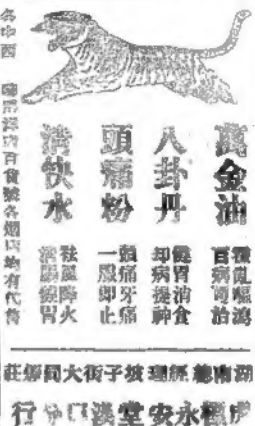 萬金油
霍亂嘔瀉
百病可治
八卦丹
健胃消食
却病提神
頭痛粉
頭痛牙痛
一服即止
清快水
祛風降火
清腸健胃
各中西
百貨號各烟店均有代售
湖南總經理坡子街大同
虎標永安堂漢口分行